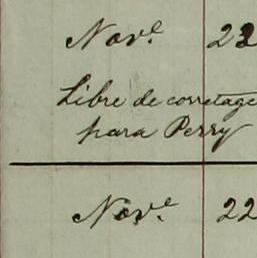 Nov.e 22
Libre de corretage
para Perry
Nov.e 22